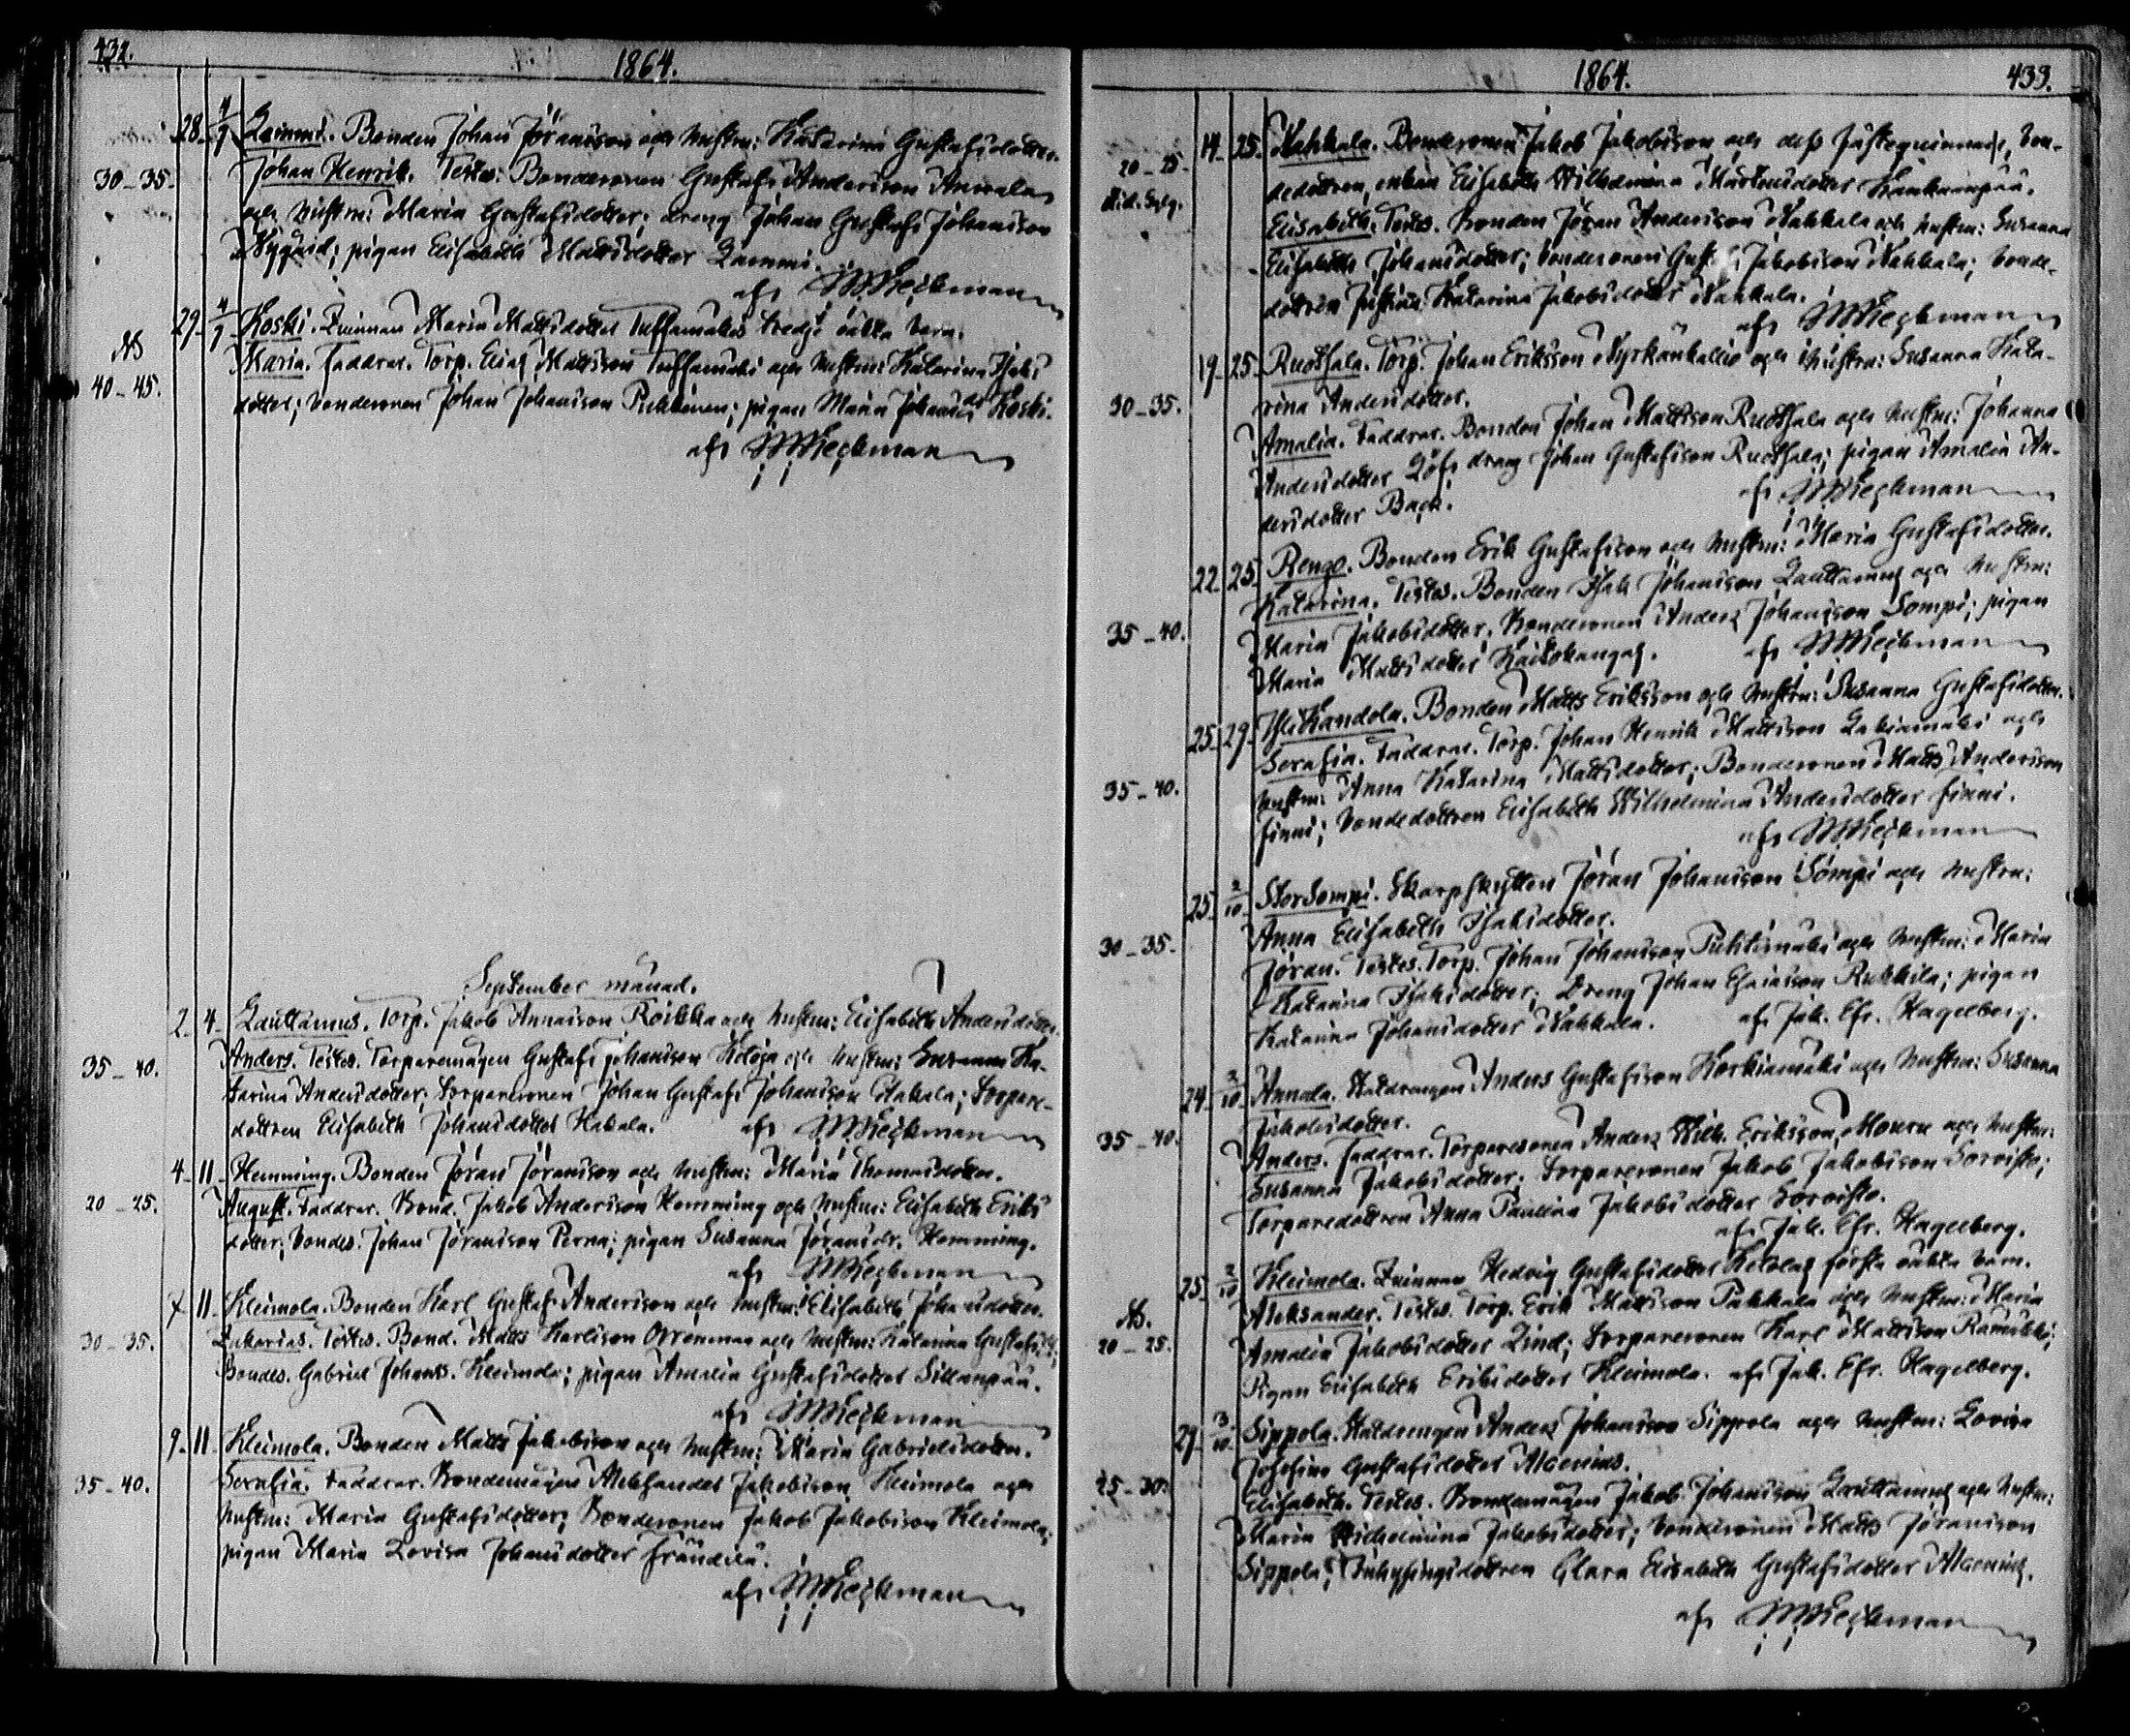 432.
1864.
28. 4/9 Lammi. Bonden Johan Jöransson och hustru: Katarina Gustafsdotter.
30-35. Johan Henrik. Testes: Bondesonen Gustaf Andersson Annala
och hustru: Maria Gustafsdotter; dreng Johan Gustaf Johansson
Nygård; pigan Elisabeth Mattsdotter Lammi.
af
29. 4/9 Koski. Quinnan Maria Mattsdotter tredje oäkta barn.
40-45. Maria. Faddrar. Torp. Elias Mattsson och hustru: Katarina Isaks
dotter; bondesonen Johan Johansson Puhkinen; pigan Maria Johansdr Koski.
af
September månad.
2. 4. Lauttamus. Torp. Jakob Annaisson Röikka och hustru: Elisabeth Andersdotter.
35-40. Anders. Testes. Torparemågen Gustaf Johansson och hustru: Susanna Ka-
tarina Andersdotter; torparesonen Johan Gustaf Johansson Hakala; torpare-
dottren Elisabeth Johansdotter Hakala. af
4. 11. Hemming. Bonden Jöran Jöransson och hustru: Maria Thomasdotter.
20-25. August. Faddrar. Bond. Jakob Andersson Hemming och hustru: Elisabeth Eriks
dotter; bondes. Johan Jöransson Perna; pigan Susanna Jöransdr. Hemming.
af
7. 11. Kleimola. Bonden Karl Gustaf Andersson och hustru: Elisabeth Johansdotter.
30-35. Zakarias. Testes. Bond. Matts Karlsson Orrenmaa och hustru: Katarina Gustafsd;
Bondes. Gabriel Johans. Kleimola; pigan Amalia Gustafsdotter Sillanpää.
af
9. 11. Kleimola. Bonden Matts Jakobsson och hustru: Maria Gabrielsdotter.
35-40. Serafia. Faddrar. Bondemågen Aleksander Jakobsson Kleimola och
hustru: Maria Gustafsdotter; Bondesonen Jakob Jakobsson Kleimola;
pigan Maria Lovisa Johansdotter Frändilä.
af
1864.
433.
14. 25. Nahkala. Bondesonen Jakob Jakobsson och dess fästeqvinna, bon-
20-25. dedottren, enkan Elisabeth Wilhelmina Mårtensdotter Kankaanpää.
Elisabeth. Testes. Bonden Jöran Andersson Nahkala och hustru: Susanna
Elisabeth Johansdotter; bondesonen Gustaf Jakobsson Nahkala; bonde-
dottren Justina Katarina Jakobsdotter Nahkala.
af
19. 25. Ruotsala. Torp. Johan Eriksson och hustru: Susanna Kata-
30-35. rina Andersdotter.
Amalia. Faddrar. Bonden Johan Mattsson Ruotsala och hustru: Johanna
Andersdotter Löf; dreng Johan Gustafsson Ruotsala; pigan Amalia An-
dersdotter Back.
af
22. 25. Rengo. Bonden Erik Gustafsson och hustru: Maria Gustafsdotter.
Katarina. Testes. Bonden Isak Johansson Lauttamus och hustru:
35-40. Maria Jakobsdotter. Bondesonen Anders Johansson Sompi; pigan
Maria Mattsdotter Kaitokangas. af
25. 29. Kandola. Bonden Matts Eriksson och hustru: Susanna Gustafsdotter.
Serafia. Faddrar. Torp. Johan Henrik Mattsson och
35-40. hustru: Anna Katarina Mattsdotter; Bondesonen Matts Andersson
Finni; bondedottren Elisabeth Wilhelmina Andersdotter Finni.
af
25. 2/10 StorSompi. Skarpskytten Jöran Johansson Sompi och hustru:
Anna Elisabeth Isaksdotter.
30-35. Jöran. Testes. Torp. Johan Johansson Puhtimäki och hustru: Maria
Katarina Isaksdotter; Dreng Johan Ruhkila; pigan
Katarina Johansdotter Nahkala. af Jak. Efr. Hagelberg.
24. 2/10 Annala. Anders Gustafsson Korkiamäki och hustru: Susanna
Jakobsdotter.
35-40. Anders. Faddrar. Torparesonen Anders Wilh. Eriksson och hustru:
Susanna Jakobsdotter; torparesonen Jakob Jakobsson Sorvisto;
Torparedottren Anna Paulina Jakobsdotter Sorvisto.
af Jak. Efr. Hagelberg.
25. 2/10 Kleimola. Quinnan Hedvig Gustafsdotter Ketolas första oäkta barn.
Aleksander. Testes. Torp. Erik Mattsson Pahkala och hustru: Maria
20-25. Amalia Jakobsdotter Lind; torparesonen Karl Mattsson
Pigan Elisabeth Eriksdotter Kleimola. af Jak. Efr. Hagelberg.
29. 3/10 Sippola. Anders Johansson Sippola och hustru: Lovisa
Josefina Gustafsdotter Alcenius.
25-30. Elisabeth. Testes. Bondemågen Jakob Johansson Lauttamus och hustru:
Maria Wilhelmina Jakobsdotter; bondesonen Matts Jöransson
Sippola; Inhysingsdottren Clara Elisabeth Gustafsdotter Alcenius.
af